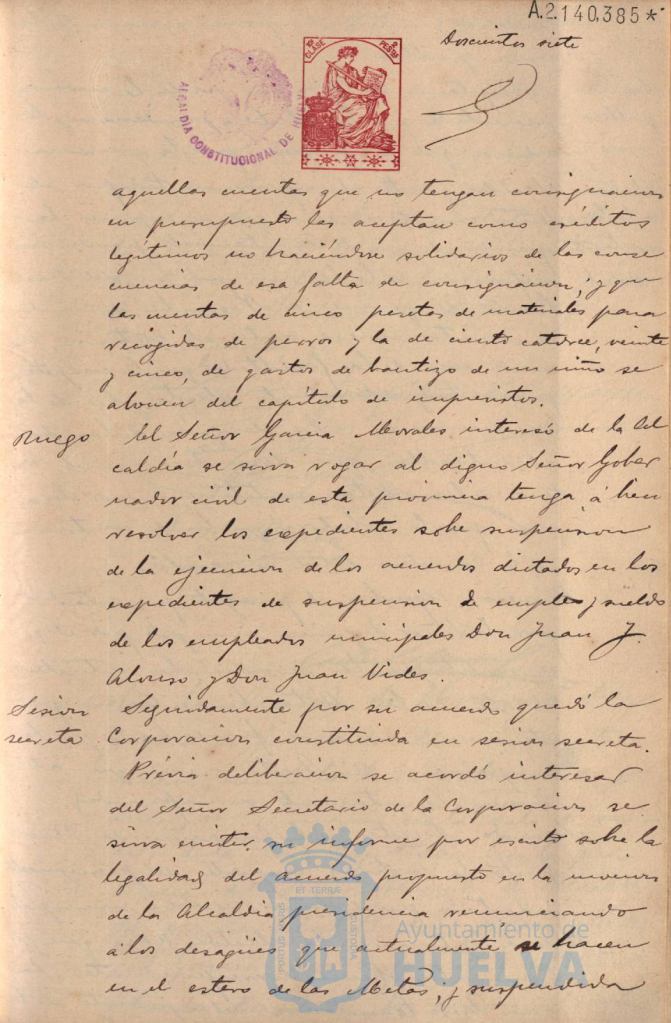 A.2.140,385*
Doscientos siete
10ª CLASE 2 PESTAS
ALCALDÍA CONSTITUCIONAL DE HUELVA
aquellas cuentas que no tengan consignacion
en presupuesto las aceptan como créditos
legítimos no haciéndose solidarios de las conse
cuencias de esa falta de consignacion; y que
las cuentas de cinco pesetas de materiales para
recogidas de perros y la de ciento catorce, veinte
y cinco, de gastos de bautizo de un niño se
abonen del capítulo de imprevistos.
Ruego El Señor Garcia Morales interesó de la Al
caldía se sirva rogar al digno Señor Gober
nador civil de esta provincia tenga á bien
resolver los expedientes sobre suspension
de la ejecucion de los acuerdos dictados en los
expedientes de suspension de empleo y sueldo
de los empleados municipales Don Juan J.
Alonso y Don Juan Vides.
Sesion Seguidamente por su acuerdo quedó la
secreta. Corporacion constituida en sesion secreta.
Prévia deliberacion se acordó interesar
del Señor Secretario de la Corporacion se
sirva emitir su informe por escrito sobre la
legalidad del acuerdo propuesto en la mocion
de la Alcaldía presidencia renunciando
á los desagües que actualmente se hacen
en el estero de las Metas; y suspendida
ET TERRÆ
PORTUS MARIS
CUSTODIA
Ayuntamiento de
HUELVA